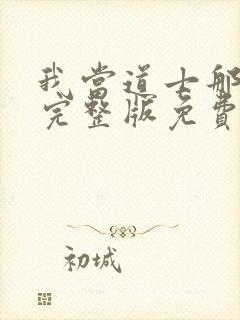 我当道士那
完整版免费
初城